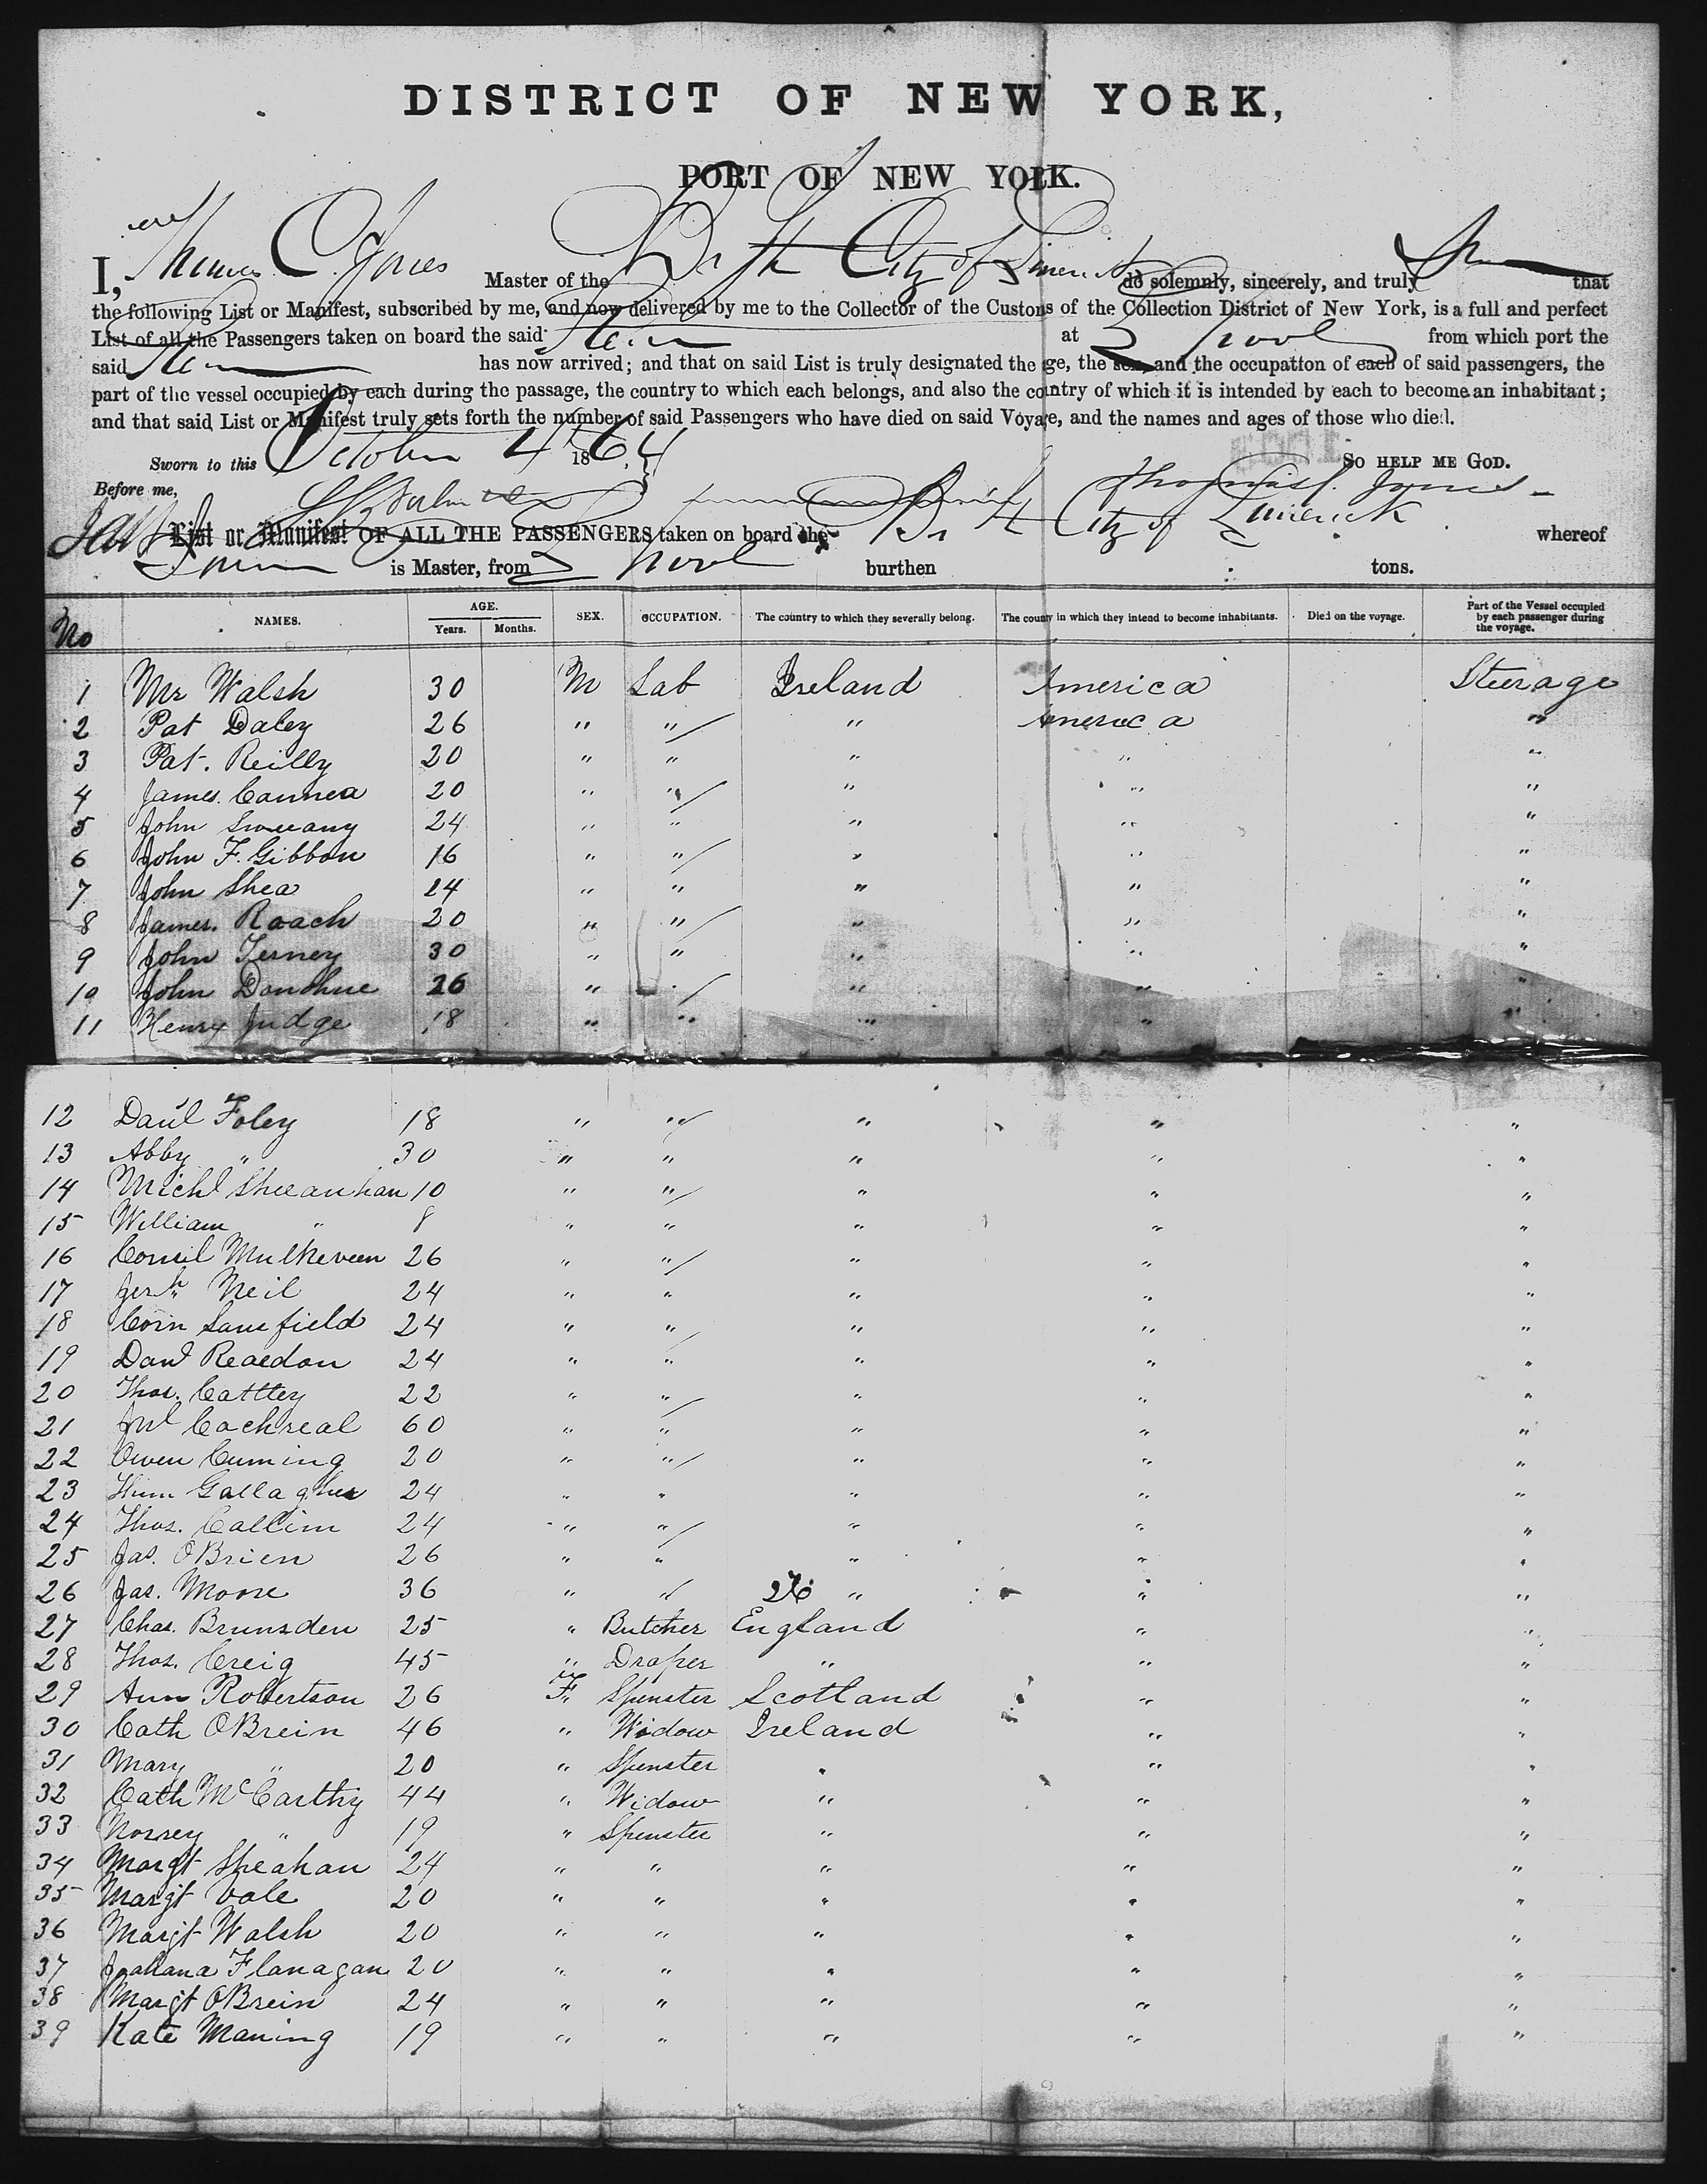 DISTRICT OF NEW YORK,
PORT OF NEW YORK.
I, Thomas C. Jones Master of the Br St City of Limerick do solemnly, sincerely, and truly that
the following List or Manifest, subscribed by me, and now delivered by me to the Collector of the Customs of the Collection District of New York, is a full and perfect
List of all the Passengers taken on board the said at L pool from which port the
said has now arrived; and that on said List is truly designated the age, the sex and the occupation of each of said passengers, the
part of the vessel occupied by each during the passage, the country to which each belongs, and also the country of which it is intended by each to become an inhabitant;
and that said List or Manifest truly sets forth the number of said Passengers who have died on said Voyage, and the names and ages of those who died.
Sworn to this October 4 1864 SO HELP ME GOD.
Before me, Thomas C. Jones
List or Manifest OF ALL THE PASSENGERS taken on board the Br St City of Limerick whereof
is Master, from L pool burthen tons.
No NAMES. AGE. Years. Months. SEX. OCCUPATION. The country to which they severally belong. The county in which they intend to become inhabitants. Died on the voyage. Part of the Vessel occupied by each passenger during the voyage.
1 Mr Walsh 30 M Lab Ireland America Steerage
2 Pat Daley 26 " " " America "
3 Pat. Reilly 20 " " " " "
4 James. Cannea 20 " " " " "
5 John Sweeany 24 " " " " "
6 John F. Gibbon 16 " " " " "
7 John Shea 24 " " " " "
8 James. Roach 20 " " " " "
9 John Terney 30 " " " " "
10 John Donohue 26 " " " " "
11 Henry Judge 18 " " " " "
12 Danl Foley 18 " " " " "
13 Abby " 30 " " " " "
14 Michl Sheeanhan 10 " " " " "
15 William " 8 " " " " "
16 Corneil Mulkeveen 26 " " " " "
17 Jerh Neil 24 " " " " "
18 Corn Lanefield 24 " " " " "
19 Danl Reaedon 24 " " " " "
20 Thos. Cattley 22 " " " " "
21 Cochreal 60 " " " " "
22 Owen Cuming 20 " " " " "
23 Gallagher 24 " " " " "
24 Thos. Callim 24 " " " " "
25 Jas. OBrien 26 " " " " "
26 Jas. Moore 36 " " 26 " " "
27 Chas. Brunsden 25 " Butcher England " "
28 Thos. Creig 45 " Draper " " "
29 Ann Robertson 26 F Spinster Scotland " "
30 Cath OBrein 46 " Widow Ireland " "
31 Mary " 20 " Spinster " " "
32 Cath McCarthy 44 " Widow " " "
33 Norrey " 19 " Spinster " " "
34 Margt Sheahan 24 " " " " "
35 Margt Vale 20 " " " " "
36 Margt Walsh 20 " " " " "
37 Flanagan 20 " " " " "
38 Margt OBrein 24 " " " " "
39 Kate Maning 19 " " " " "